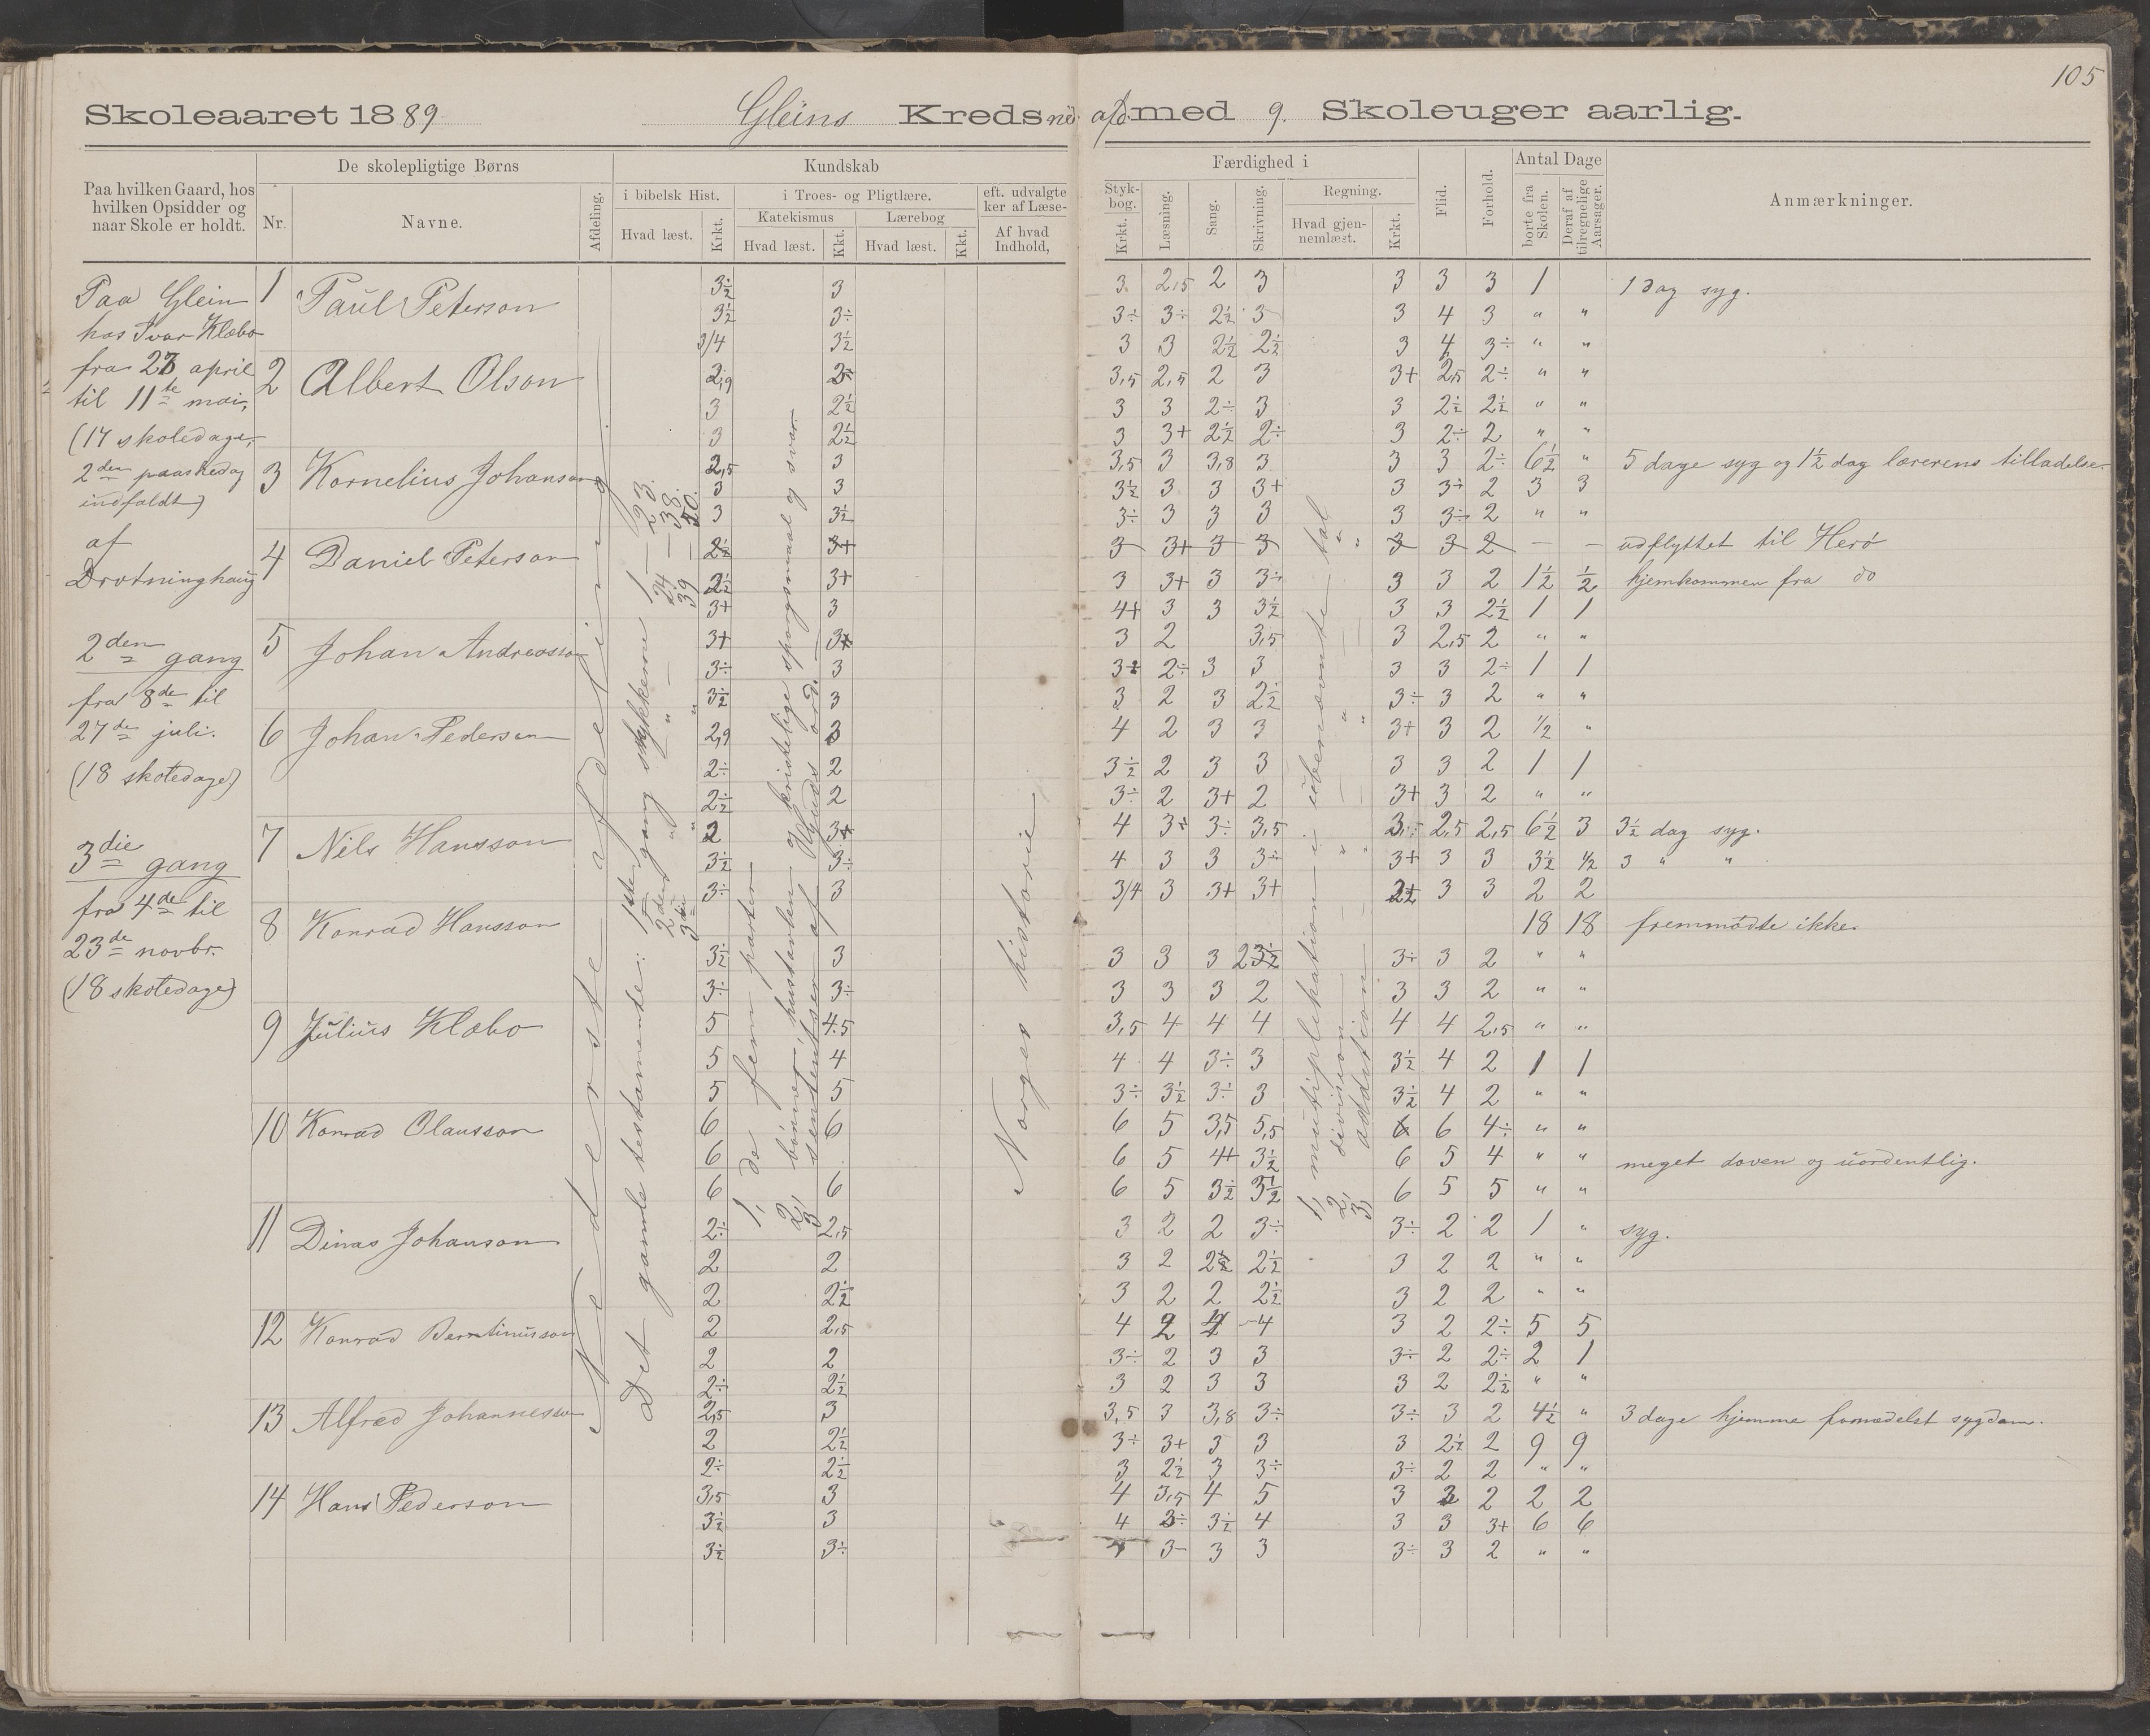 105
Skoleaaret 1889 Gleins Kreds ned. afd. med 9. Skoleuger aarlig.
Paa hvilken Gaard, hos hvilken Opsidder og naar Skole er holdt.
De skolepligtige Børns
Nr. Navne. Afdeling.
Kundskab
i bibelsk Hist. i Troes- og Pligtlære. eft. udvalgte
ker af Læse-
Hvad læst. Krkt. Katekismus Lærebog
Hvad læst. Kkt. Hvad læst. Kkt. Af hvad Indhold,
Færdighed i
Styk-
bog.
Krkt. Læsning. Sang. Skrivning. Regning.
Hvad gjen-
nemlæst. Krkt. Flid. Forhold.
Antal Dage
borte fra Skolen. Deraf af tilregnelige Aarsager.
Anmærkninger.
Paa Glein
hos Ivar Klæbo
fra 23 april
til 11te mai,
(17 skoledage,
2den paaskedag
indfaldt)
af
Drotninghaug
2den gang
fra 8de til
27de juli.
(18 skoledage)
3die gang
fra 4de til
23de novbr.
(18 skoledage)
Nederste afdeling
Det gamle testamente: 1ste gang stykkerne 1 — 23.
2den " " 24 — 38.
3die " " 39 — 50.
1, de fem parter
2, bønner, hustavlen og kristelige spørgsmaal og svar
3 sententser af Guds ord.
Norges historie
1, multiplikation i ubenævnte tal
2, division " "
3, addition " "
1 Paul Peterson 3½ 3 3 2,5 2 3 3 3 3 1 1 dag syg.
3½ 3÷ 3÷ 3÷ 2½ 3 3 4 3 " "
3/4 3½ 3 3 2½ 2½ 3 4 3÷ " "
2 Albert Olson 2,9 2÷ 3,5 2,5 2 3 3+ 2,5 2÷ " "
3 2½ 3 3 2÷ 3 3 2½ 2½ " "
3 2½ 3 3+ 2½ 2÷ 3 2÷ 2 " "
3 Kornelius Johanson 2,5 3 3,5 3 3,8 3 3 3 2÷ 6½ " 5 dage syg og 1½ dag lærerens tilladelse.
3 3 3½ 3 3 3+ 3 3÷ 2 3 3
3 3½ 3÷ 3 3 3 3 3÷ 2 " "
4 Daniel Peterson 2½ 3+ 3 3+ 3 3 3 3 2 — — udflyttet til Herö
2½ 3+ 3 3+ 3 3÷ 3 3 2 1½ ½ hjemkommen fra do
3+ 3 4+ 3 3 3½ 3 3 2½ 1 1
5 Johan Andreasson 3+ 3+ 3 2 3,5 3 2,5 2 " "
3÷ 3 3÷ 2÷ 3 3 3 3 2÷ 1 1
3½ 3 3 2 3 2½ 3÷ 3 2 " "
6 Johan Pederson 2,9 3 4 2 3 3 3+ 3 2 ½ "
2÷ 2 3½ 2 3 3 3 3 2 1 1
2½ 2 3÷ 2 3+ 2 3+ 3 2 " "
7 Nils Hansson 2 3+ 4 3÷ 3÷ 3,5 3,5 2,5 2,5 6½ 3 3½ dag syg.
3½ 3÷ 4 3 3 3÷ 3+ 3 3 3½ ½ 3 " "
3÷ 3 3/4 3 3+ 3+ 2+ 3 3 2 2
8 Konrad Hansson 18 18 fremmödte ikke.
3½ 3 3 3 3 2 3÷ 3 2 " "
3÷ 3÷ 3 3 3 2 3 3 2 " "
9 Julius Klæbo 5 4.5 3,5 4 4 4 4 4 2,5 " "
5 4 4 4 3÷ 3 3½ 4 2 1 1
5 5 3÷ 3½ 3÷ 3 3½ 4 2 " "
10 Konrad Olausson 6 6 6 5 3,5 5,5 6 6 4÷ " "
6 6 5 4+ 3½ 6 5 4 " " meget doven og uordentlig.
6 6 6 5 3½ 3½ 6 5 5 " "
11 Dinas Johanson 2÷ 2,5 3 2 2 3÷ 3÷ 2 2 1 " syg.
2 2 3 2 2½ 2½ 3 2 2 " "
2 2½ 3 2 2 2½ 3 2 2 " "
12 Konrad Berntinusson 2 2,5 4 2 4 4 3 2 2÷ 5 5
2 2 3÷ 2 3 3 3÷ 2 2÷ 2 1
2÷ 2½ 3 2 3 3 3 2 2½ " "
13 Alfred Johannesson 2,5 3 3,5 3 3,8 3÷ 3÷ 3 2 4½ " 3 dage hjemme formedelst sygdom.
2 2½ 3÷ 3+ 3 3 3 2½ 2 9 9
2÷ 2½ 3 2½ 3 3÷ 3÷ 2 2 " "
14 Hans Pederson 3,5 3 4 3,5 4 5 3 3 2 2 2
3½ 3 4 3÷ 3½ 4 3 3 3+ 6 6
3½ 3÷ 3- 3 3 3÷ 3 2 " "